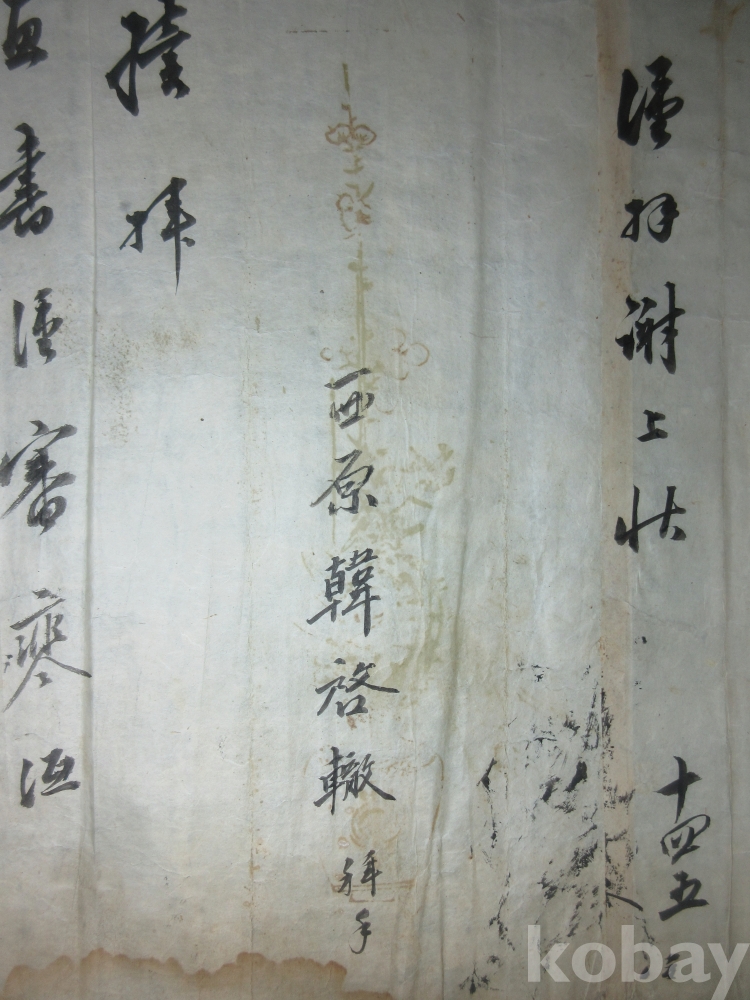 謹拜謝上狀
十四五
西原韓啓轍拜手
拜
書謹審寒沍
kobay